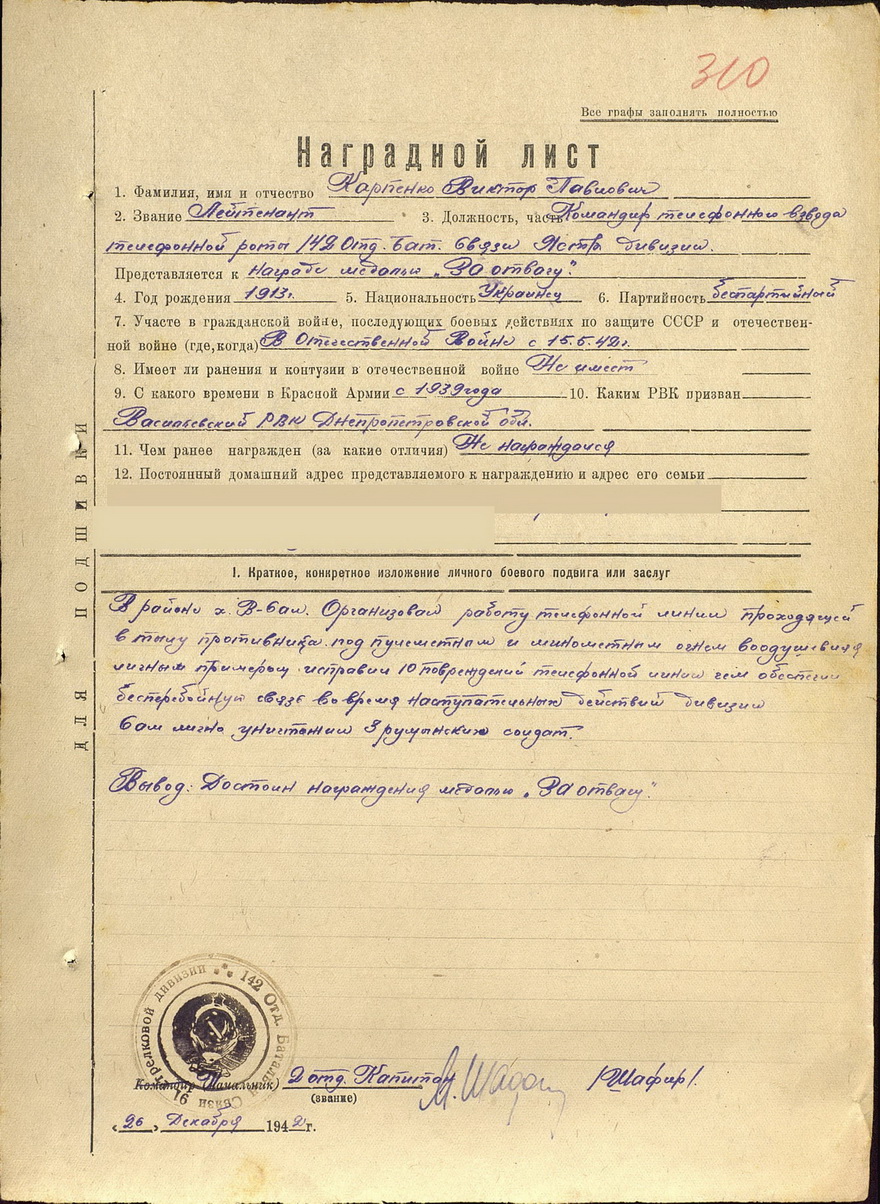 310
Все графы заполнять полностью
Наградной лист
1. Фамилия, имя и отчество Карпенко Виктор Павлович
2. Звание Лейтенант 3. Должность, часть Командир телефонного взвода
телефонной роты 142 Отд. Бат. Связи 91 стр дивизии.
Представляется к награде медалью „За отвагу“.
4. Год рождения 1913г. 5. Национальность Украинец 6. Партийность беспартийный
7. Участе в гражданской войне, последующих боевых действиях по защите СССР и отечествен-
ной войне (где, когда) В Отечественной Войне с 15.5.42г.
8. Имеет ли ранения и контузии в отечественной войне Не имеет
9. С какого времени в Красной Армии с 1939 года 10. Каким РВК призван
Васильевский РВК Днепропетровской обл.
11. Чем ранее награжден (за какие отличия) Не награждался
12. Постоянный домашний адрес представляемого к награждению и адрес его семьи
I. Краткое, конкретное изложение личного боевого подвига или заслуг
В районе х. В-Сал. Организовал работу телефонной линии проходящей
в тылу противника под пулеметным и минометным огнем воодушевляя
личным примером исправил 10 повреждений телефонной линии чем обеспечил
бесперебойную связь во время наступательных действий дивизии
Сам лично уничтожил 3 румынских солдат.
Вывод: Достоин награждения медалью „За отвагу“
142 Отд. Батальон Связи 91 Стрелковой дивизии
Командир (Начальник) 142 отд. Капитан /Шафир/.
(звание)
„26„ Декабря 1942г.
ДЛЯ ПОДШИВКИ